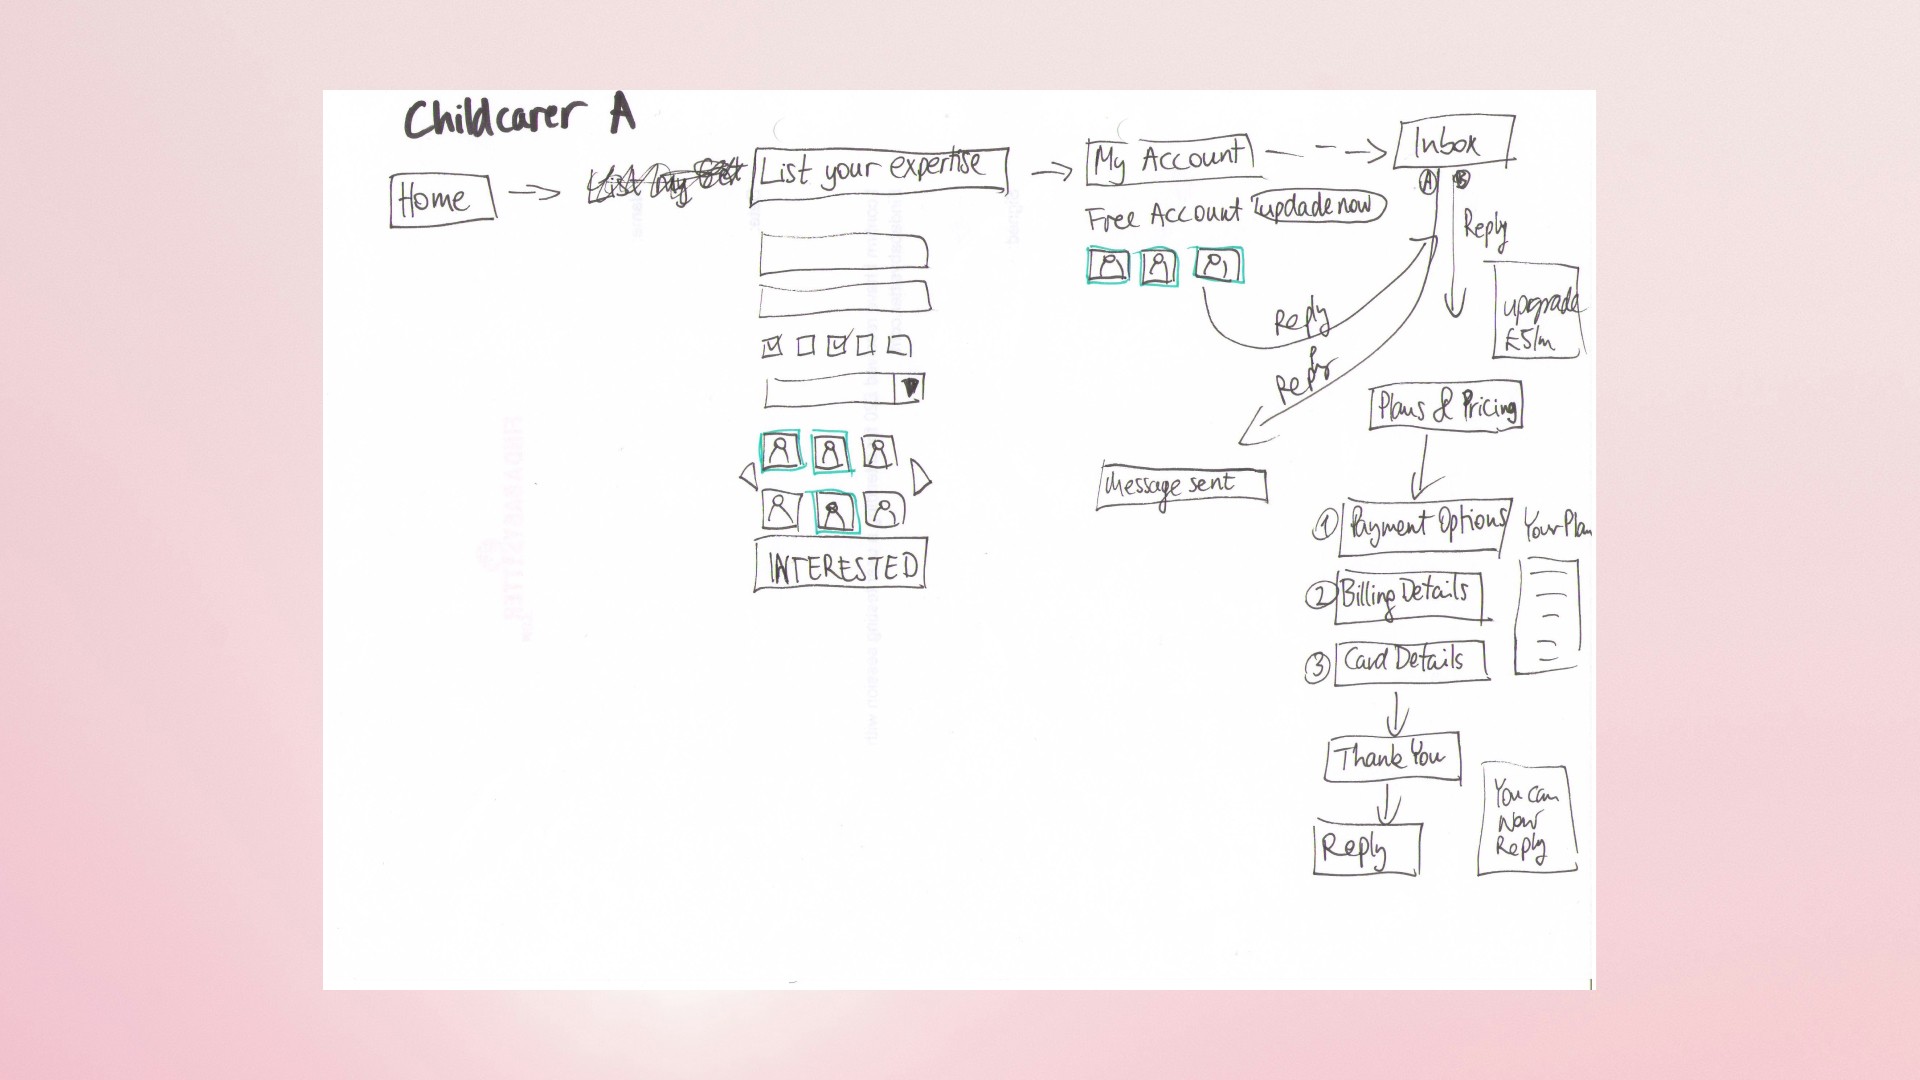 Childcarer A
Home
List my
List your expertise
INTERESTED
My Account
Free Account updade now
Inbox
A B
Reply
upgrade
£5/m
Reply
Reply
Message sent
Plans & Pricing
1 Payment Options
Your Plan
2 Billing Details
3 Card Details
Thank You
Reply
You can
Now
Reply